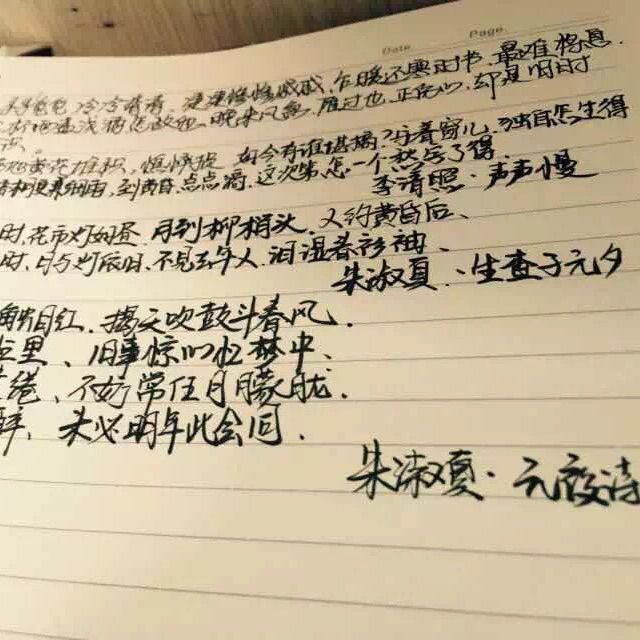 Date Page
觅觅,冷冷清清,凄凄惨惨戚戚,乍暖还寒时节,最难将息.
怎敌他,晚来风急,雁过也,正伤心,却是旧时
识。
地黄花堆积,憔悴损,如今有谁堪摘?守着窗儿,独自怎生得
更兼细雨,到黄昏,点点滴,这次第,怎一个愁字了得.
李清照·声声慢
时,花市灯如昼.月到柳梢头,又约黄昏后、
时,月与灯依旧.不见去年人,泪湿春衫袖.
朱淑夏·生查子元夕
红,揭天吹鼓斗春风.
里、旧事惊心忆梦中、
绻、不妨常任月朦胧.
醉,未必明年此会同.
朱淑夏·元夜诗